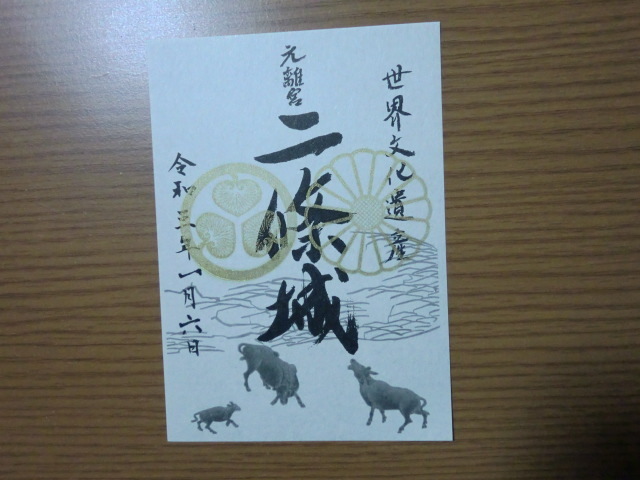 世界文化遺産
元離宮
二條城
令和三年一月六日